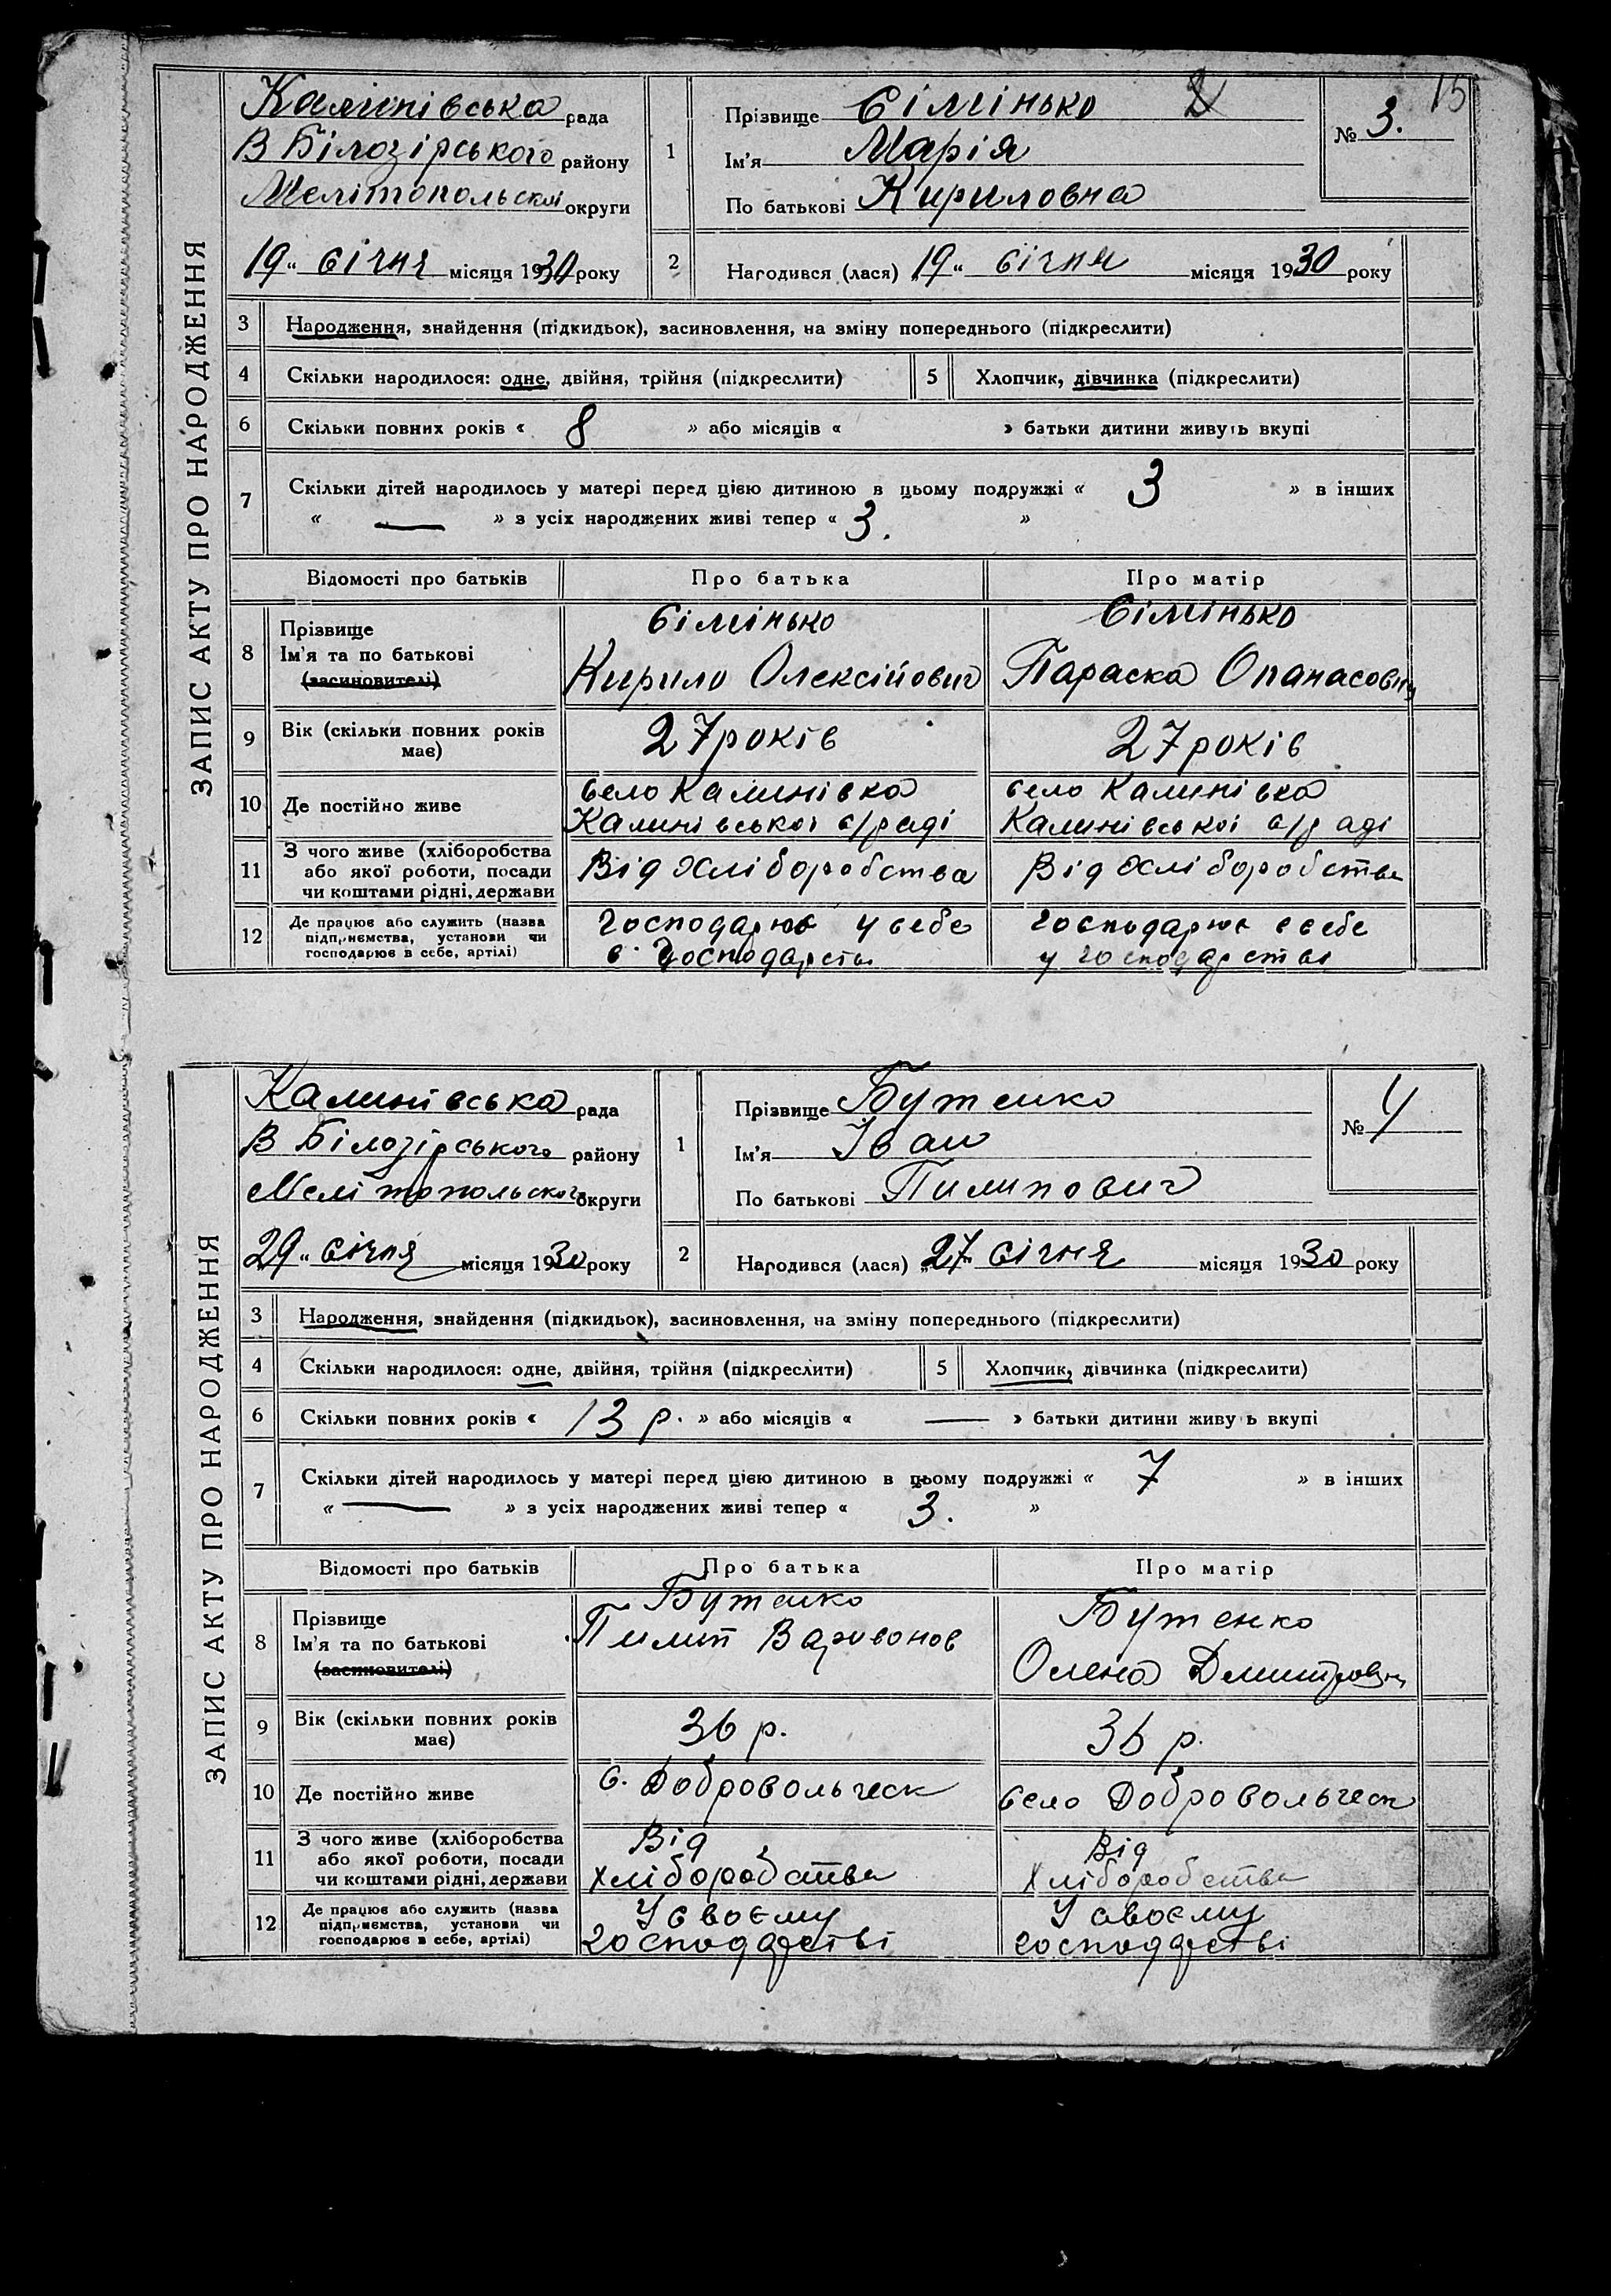 15
ЗАПИС АКТУ ПРО НАРОДЖЕННЯ
Калинівська рада
В Білозірського району
Мелітопольскої округи
19 „ січня місяця 1930 року
1 Прізвище Сімінько
Ім'я Марія
По батькові Кириловна
№ 3.
2 Народився (лася) 19 „ січня місяця 1930 року
3 Народження, знайдення (підкидьок), засиновлення, на зміну попереднього (підкреслити)
4 Скільки народилося: одне, двійня, трійня (підкреслити) 5 Хлопчик, дівчинка (підкреслити)
6 Скільки повних років « 8 » або місяців « » батьки дитини живуть вкупі
7 Скільки дітей народилось у матері перед цією дитиною в цьому подружжі « 3 » в інших
« — » з усіх народжених живі тепер « 3. »
Відомості про батьків Про батька Про матір
8 Прізвище Ім'я та по батькові (засиновителі)
Сімінько
Кирило Олексійович
Сімінько
Параска Опанасовна
9 Вік (скільки повних років має) 27 років 27 років
10 Де постійно живе
село Калинівка
Калинівської с/раді
село Калинівка
Калинівської с/раді
11 З чого живе (хліборобства
або якої роботи, посади
чи коштами рідні, держави
Від Хліборобства Від Хліборобства
12 Де працює або служить (назва
підприємства, установи чи
господарює в себе, артілі)
господарює у себе
в господарстві
господарює в себе
у господарстві
ЗАПИС АКТУ ПРО НАРОДЖЕННЯ
Калинівська рада
В Білозірського району
Мелітопольского округи
29 „ січня місяця 1930 року
1 Прізвище Бутенко
Ім'я Іван
По батькові Пилипович
№ 4
2 Народився (лася) „27" січня місяця 1930 року
3 Народження, знайдення (підкидьок), засиновлення, на зміну попереднього (підкреслити)
4 Скільки народилося: одне, двійня, трійня (підкреслити) 5 Хлопчик, дівчинка (підкреслити)
6 Скільки повних років « 13 р. » або місяців « — » батьки дитини живу ь вкупі
7 Скільки дітей народилось у матері перед цією дитиною в цьому подружжі « 7 » в інших
« — » з усіх народжених живі тепер « 3. »
Відомості про батьків Про батька Про матір
8 Прізвище Ім'я та по батькові (засиновителі)
Бутенко
Пилип Варивонов
Бутенко
Олена Дмитровна
9 Вік (скільки повних років має) 36 р. 36 р.
10 Де постійно живе с. Добровольческ село Добровольческ
11 З чого живе (хліборобства
або якої роботи, посади
чи коштами рідні, держави
Від
хліборобства
Від
хліборобства
12 Де працює або служить (назва
підприємства, установи чи
господарює в себе, артілі)
У своєму
господарстві
У своєму
господарстві